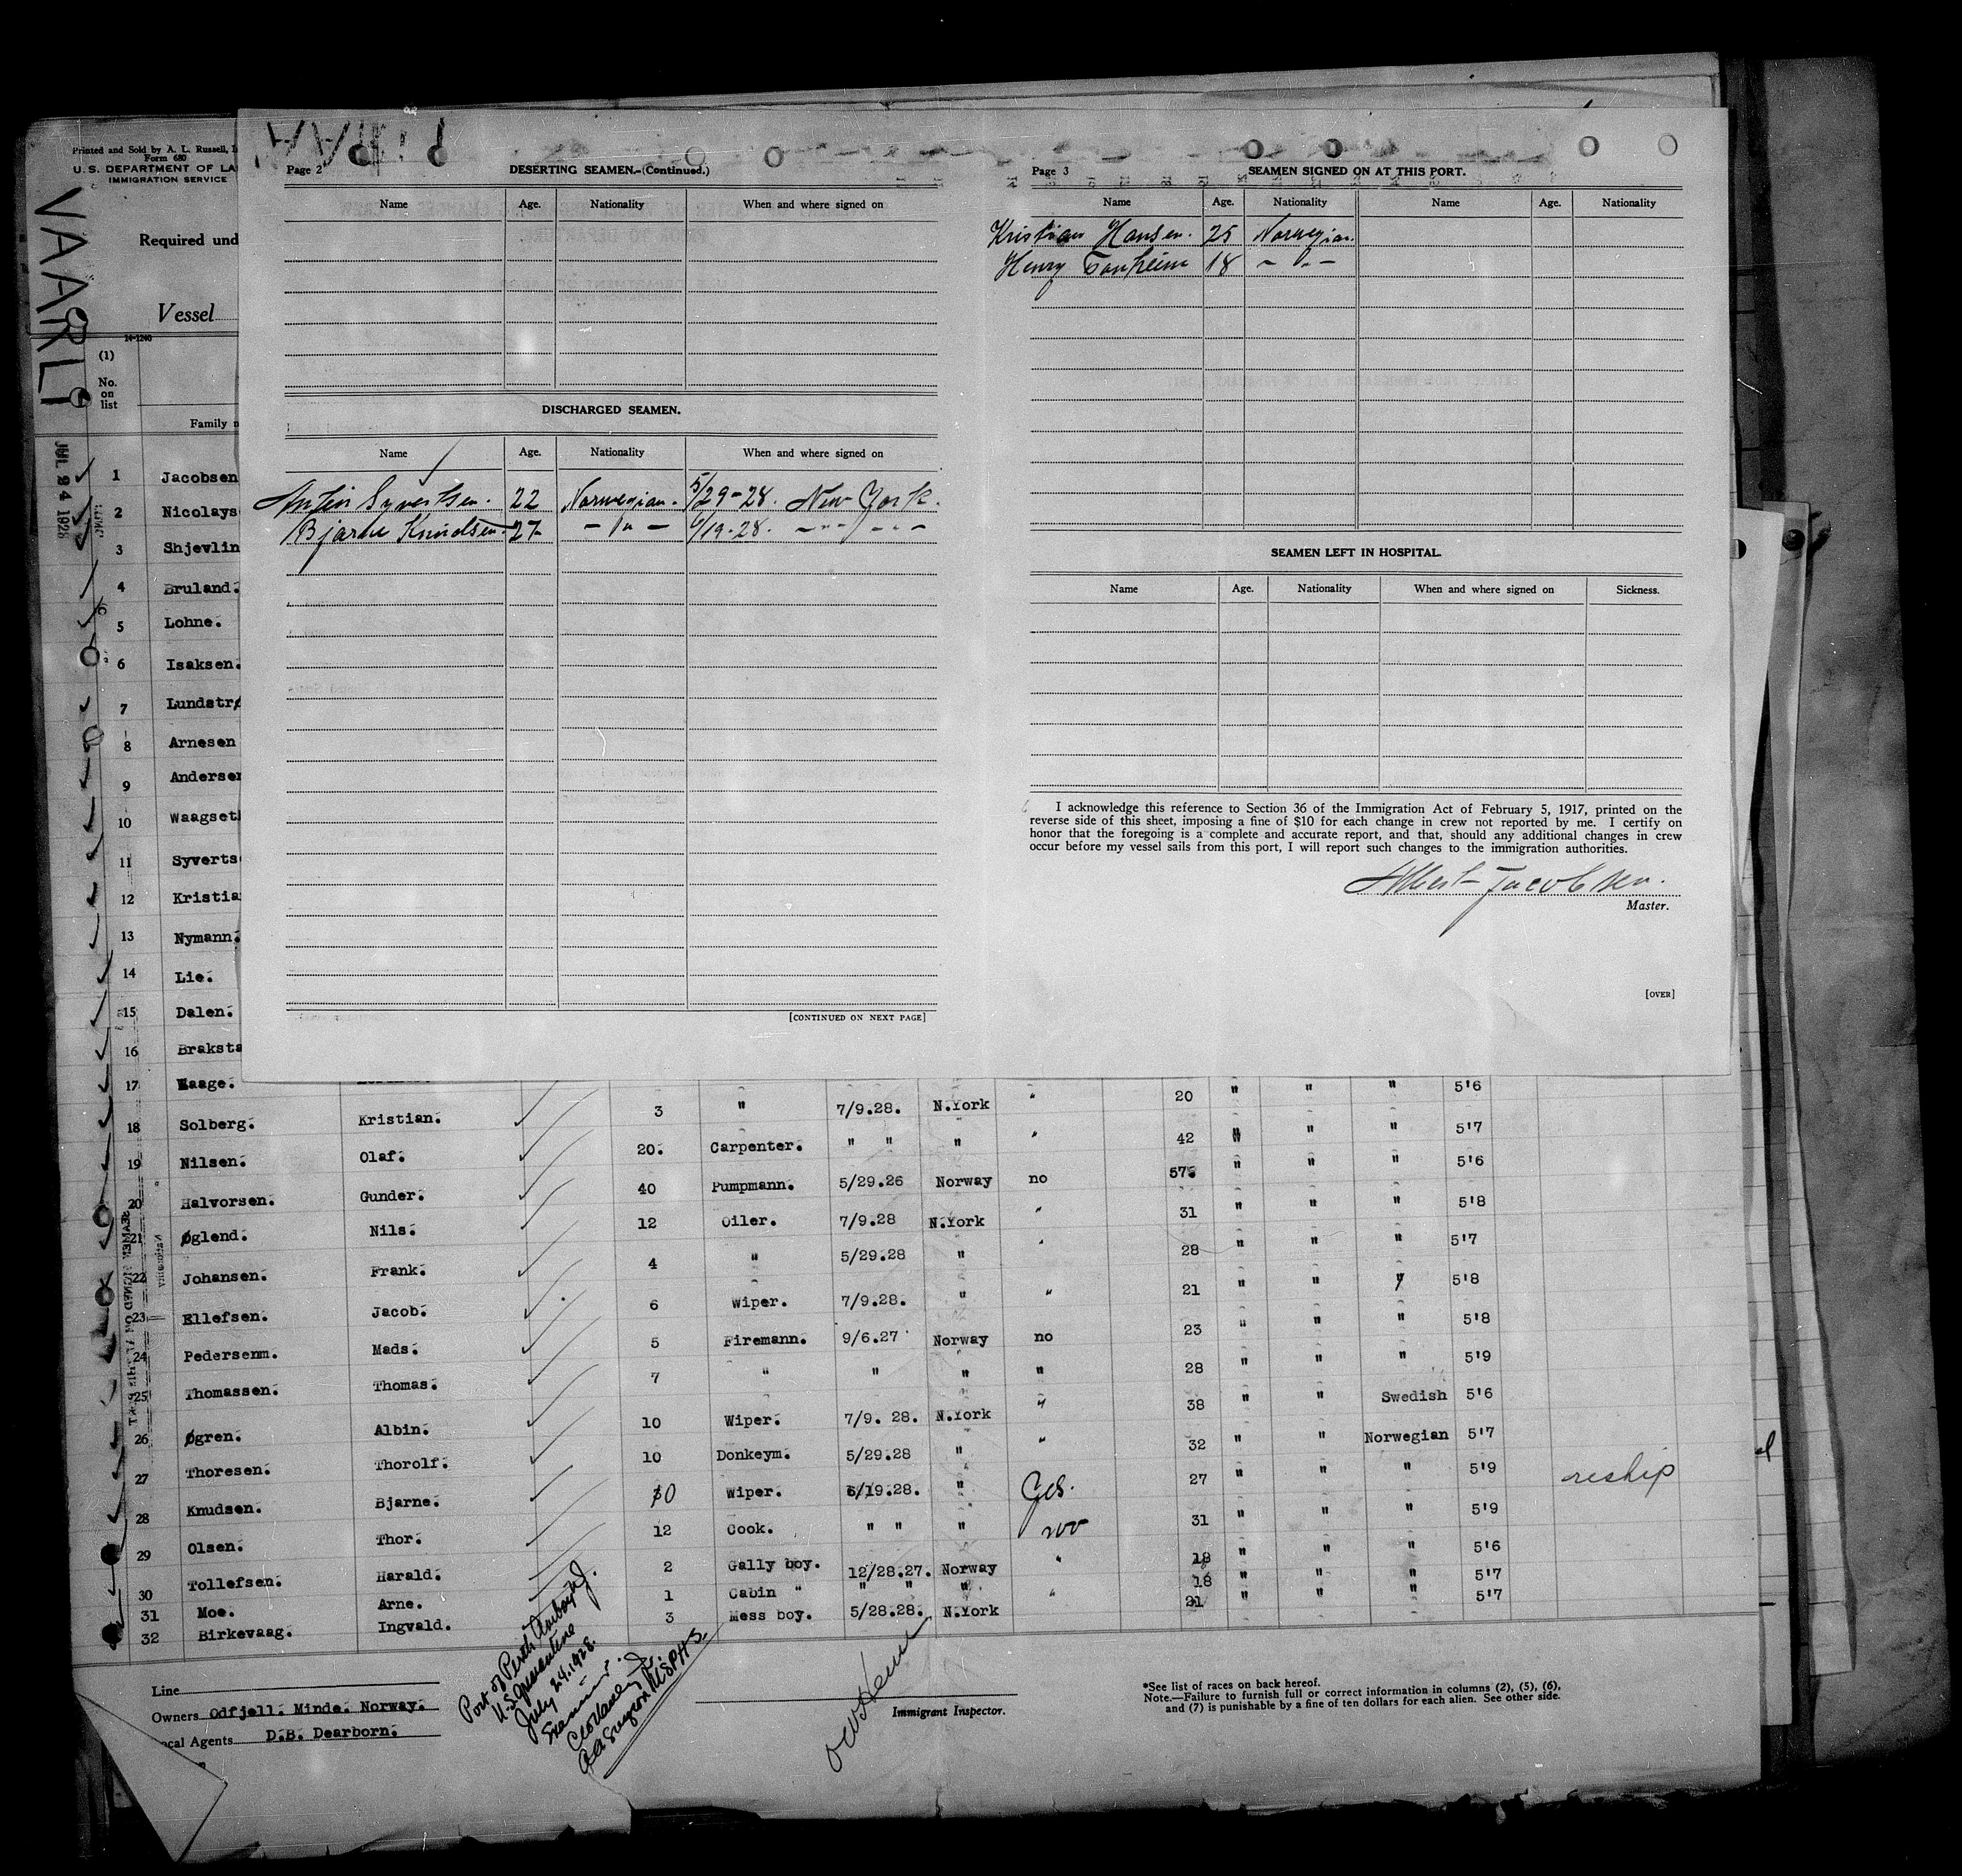 Printed and Sold by A. L. Russell,
Form 680
U.S. DEPARTMENT OF LA
IMMIGRATION SERVICE
VAARLI
Required und
Vessel
14-1240
(1)
No.
on
list
Family n
JUL 24 1928
1 Jacobsen
2 Nicolays
3 Shjevlin
4 Bruland.
5 Lohne.
6 Isaksen.
7 Lundstrø
8 Arnesen
9 Andersen
10 Waagset
11 Syverts
12 Kristia
13 Nymann.
14 Lie.
15 Dalen.
16 Braksta
Page 2
DESERTING SEAMEN.-(Continued.)
Name Age. Nationality When and where signed on
DISCHARGED SEAMEN.
Name Age. Nationality When and where signed on
Syvertsen. 22 Norwegian. 5/29-28. New York.
Bjarne Knudsen. 27 - " - 6/19-28. - " - - " -
[CONTINUED ON NEXT PAGE]
Page 3
SEAMEN SIGNED ON AT THIS PORT.
Name Age. Nationality Name Age. Nationality
Kristian Hansen. 25 Norwegian.
Henry 18 - " -
SEAMEN LEFT IN HOSPITAL.
Name Age. Nationality When and where signed on Sickness.
I acknowledge this reference to Section 36 of the Immigration Act of February 5, 1917, printed on the
reverse side of this sheet, imposing a fine of $10 for each change in crew not reported by me. I certify on
honor that the foregoing is a complete and accurate report, and that, should any additional changes in crew
occur before my vessel sails from this port, I will report such changes to the immigration authorities.
Albert Jacobsen.
Master.
[OVER]
17 Waage. 20 " " " 5'6
18 Solberg. Kristian. 3 " 7/9.28. N.York " 42 " " " 5'7
19 Nilsen. Olaf. 20. Carpenter. " " " " 57. " " " 5'6
20 Halvorsen. Gunder. 40 Pumpmann. 5/29.26 Norway no 31 " " " 5'8
21 Øglend. Nils. 12 Oiler. 7/9.28 N.York " 28 " " " 5'7
22 Johansen. Frank. 4 " 5/29.28 " " 21 " " " 5'8
23 Ellefsen. Jacob. 6 Wiper. 7/9.28. " " 23 " " " 5'8
24 Pedersenm. Mads. 5 Firemann. 9/6.27 Norway no 28 " " " 5'9
25 Thomassen. Thomas. 7 " " " " 38 " " Swedish 5'6
26 Øgren. Albin. 10 Wiper. 7/9. 28. N.York " 32 " " Norwegian 5'7
27 Thoresen. Thorolf. 10 Donkeym. 5/29.28 " " 27 " " " 5'9 reship
28 Knudsen. Bjarne. 10 Wiper. 6/19.28. " Yes. 31 " " " 5'9
29 Olsen. Thor. 12 Cook. " " " no 18 " " " 5'6
30 Tollefsen. Harald. 2 Gally boy. 12/28.27. Norway " 18 " " " 5'7
31 Moe. Arne. 1 Cabin " " " " " 21 " " " 5'7
32 Birkevaag. Ingvald. 3 Mess boy. 5/28.28. N.York
Port of Perth Amboy N.J.
U.S. Quarantine
July 24. 1928.
AA Surgeon USPHS.
Line
Owners Odfjell. Minde. Norway.
cal Agents D.B. Dearborn.
Immigrant Inspector.
*See list of races on back hereof.
Note.—Failure to furnish full or correct information in columns (2), (5), (6),
and (7) is punishable by a fine of ten dollars for each alien. See other side.